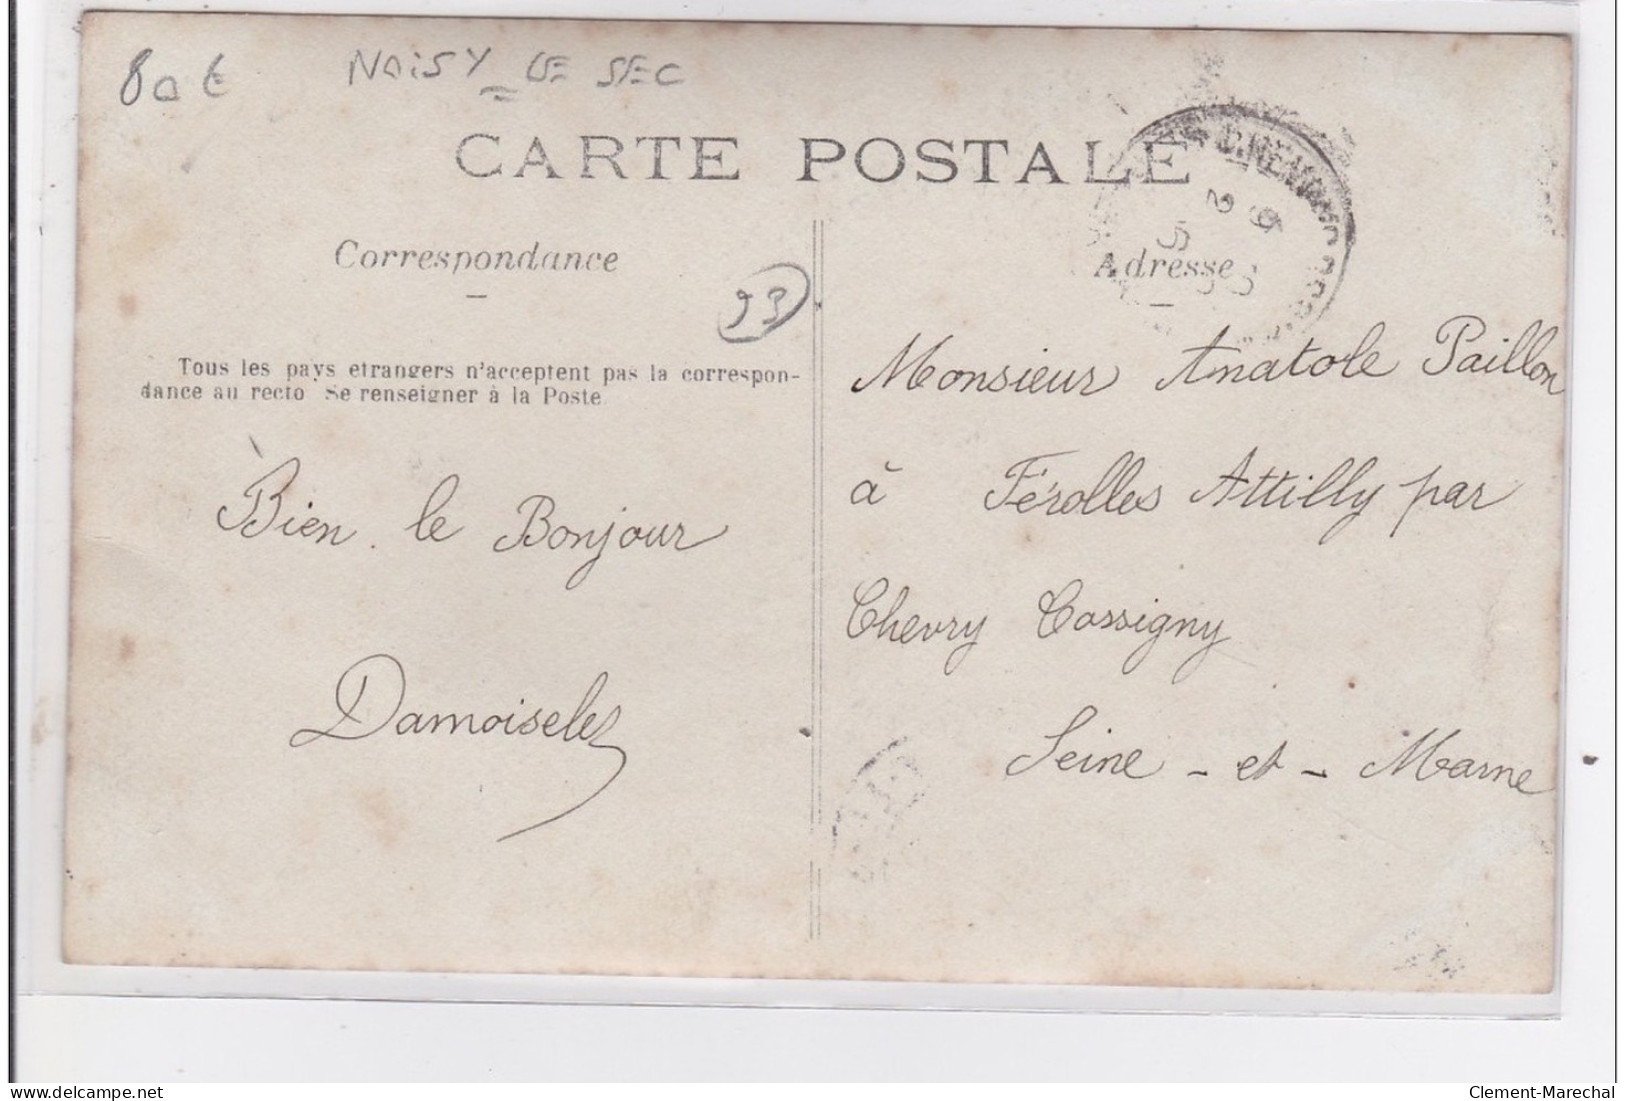 80 €
NOISY LE SEC
CARTE POSTALE
Correspondance
93
Adresse
Tous les pays etrangers n'acceptent pas la correspon-
dance au recto Se renseigner à la Poste
Bien le Bonjour
Damoiselez
Monsieur Anatole Paillon
à Férolles Attilly par
Chevry Cossigny
Seine - et - Marne
delcampe.net
Clement-Marechal